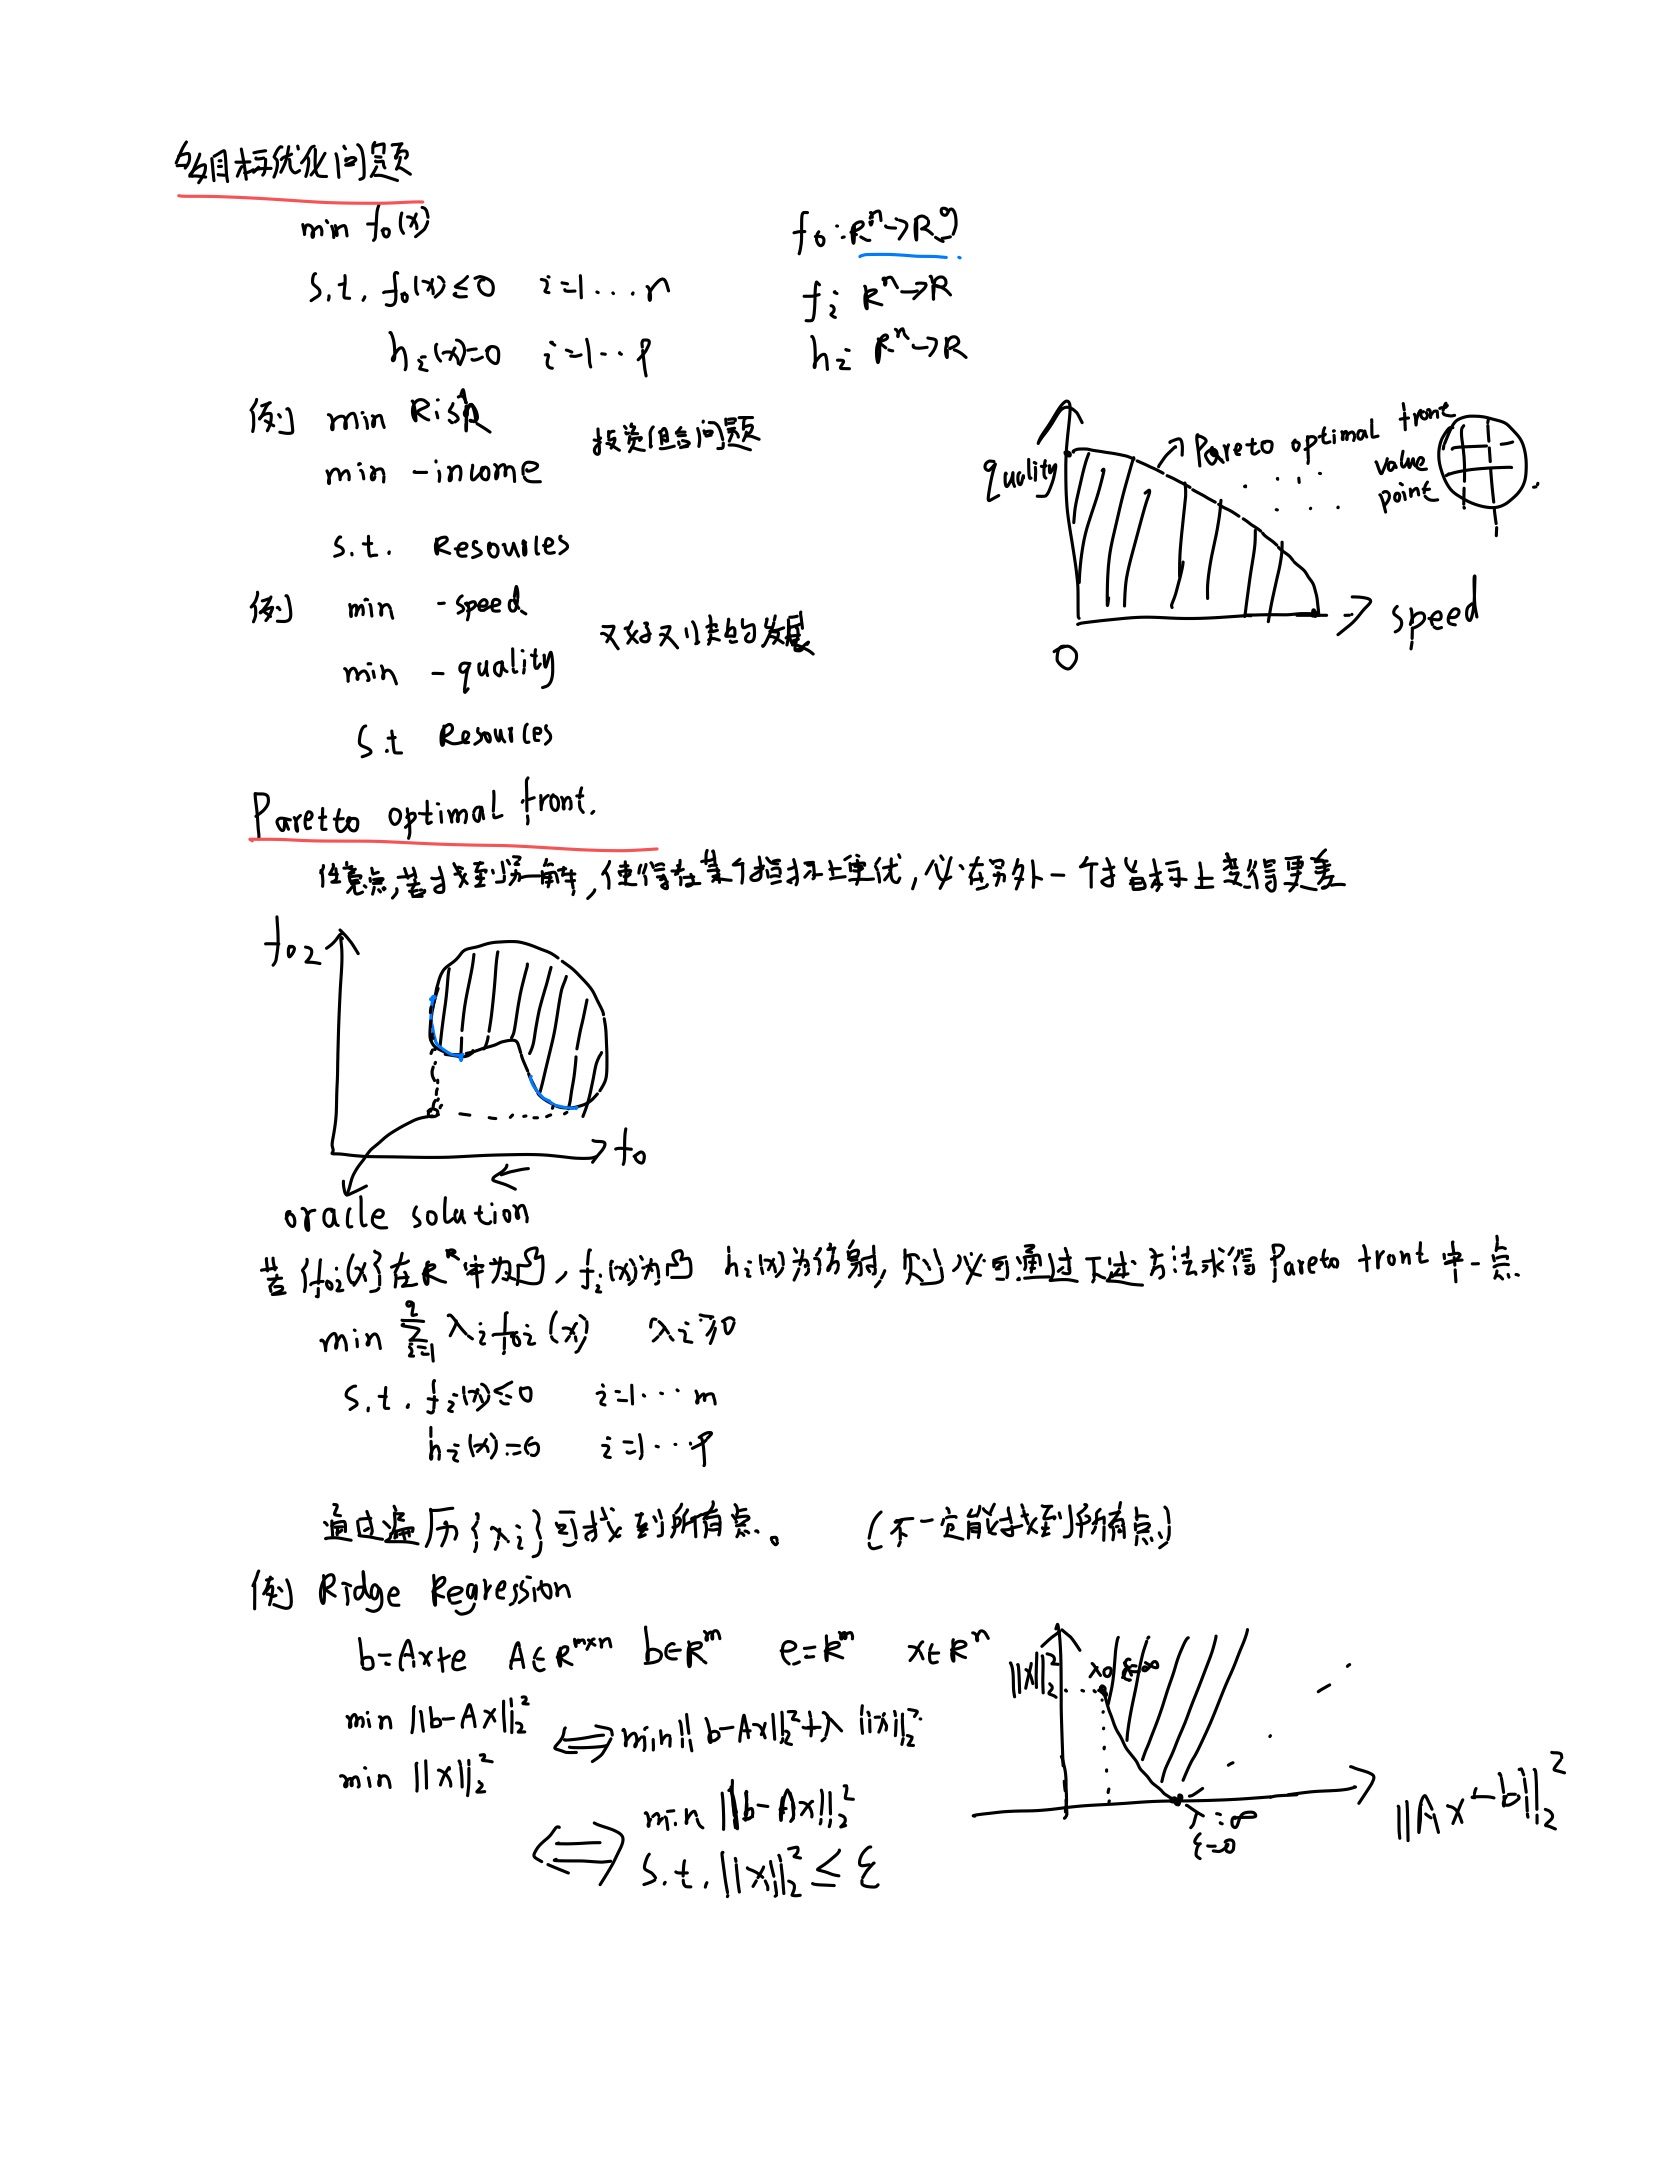 多目标优化问题
min f₀(x)    f₀: Rⁿ→R^q
s.t. f₀(x)≤0  i=1...n    fᵢ Rⁿ→R
hᵢ(x)=0  i=1...p    hᵢ Rⁿ→R
例 min Risk
min -income  投资组合问题
s.t. Resources
例 min -speed
min -quality  又好又快的发展
s.t Resources
quality
Pareto optimal front
value
point
speed
0
Paretto optimal front.
任意点,若找到另一解,使得在某个指标上更优,必在另外一个指标上变得更差
f₀₂
f₀
oracle solution
若{f₀ᵢ(x)}在Rⁿ中为凸, fᵢ(x)为凸 hᵢ(x)为仿射,则必可通过下述方法求得Pareto front中一点.
min ∑ᵢ₌₁^q λᵢf₀ᵢ(x)  λᵢ≥0
s.t. fᵢ(x)≤0  i=1...m
hᵢ(x)=0  i=1...p
通过遍历{λᵢ}可找到所有点。 (不一定能找到所有点)
例 Ridge Regression
b=Ax+e  A∈R^{m×n}  b∈R^m  e=R^m  x∈Rⁿ
min ||b-Ax||₂²
⟺ min || b-Ax||₂²+λ ||x||₂²
min ||x||₂²
⟺ min ||b-Ax||₂²
s.t. ||x||₂² ≤ ε
||x||₂²
ε=∞
λ=∞
ε=0
||Ax-b||₂²